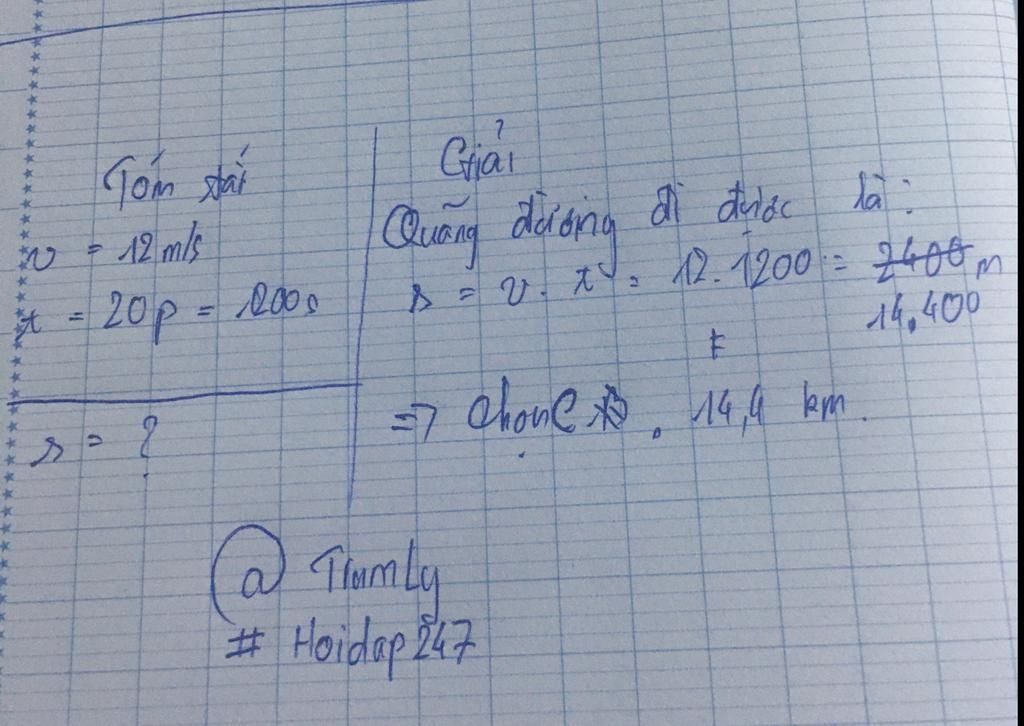 Tóm tắt
v = 12 m/s
t = 20p = 1200s
s = ?
Giải
Quãng đường đi được là:
s = v. t = 12. 1200 = 2400 m
14.400
=> Chọn C. 14,4 km.
@ TrumLy
# Hoidap247